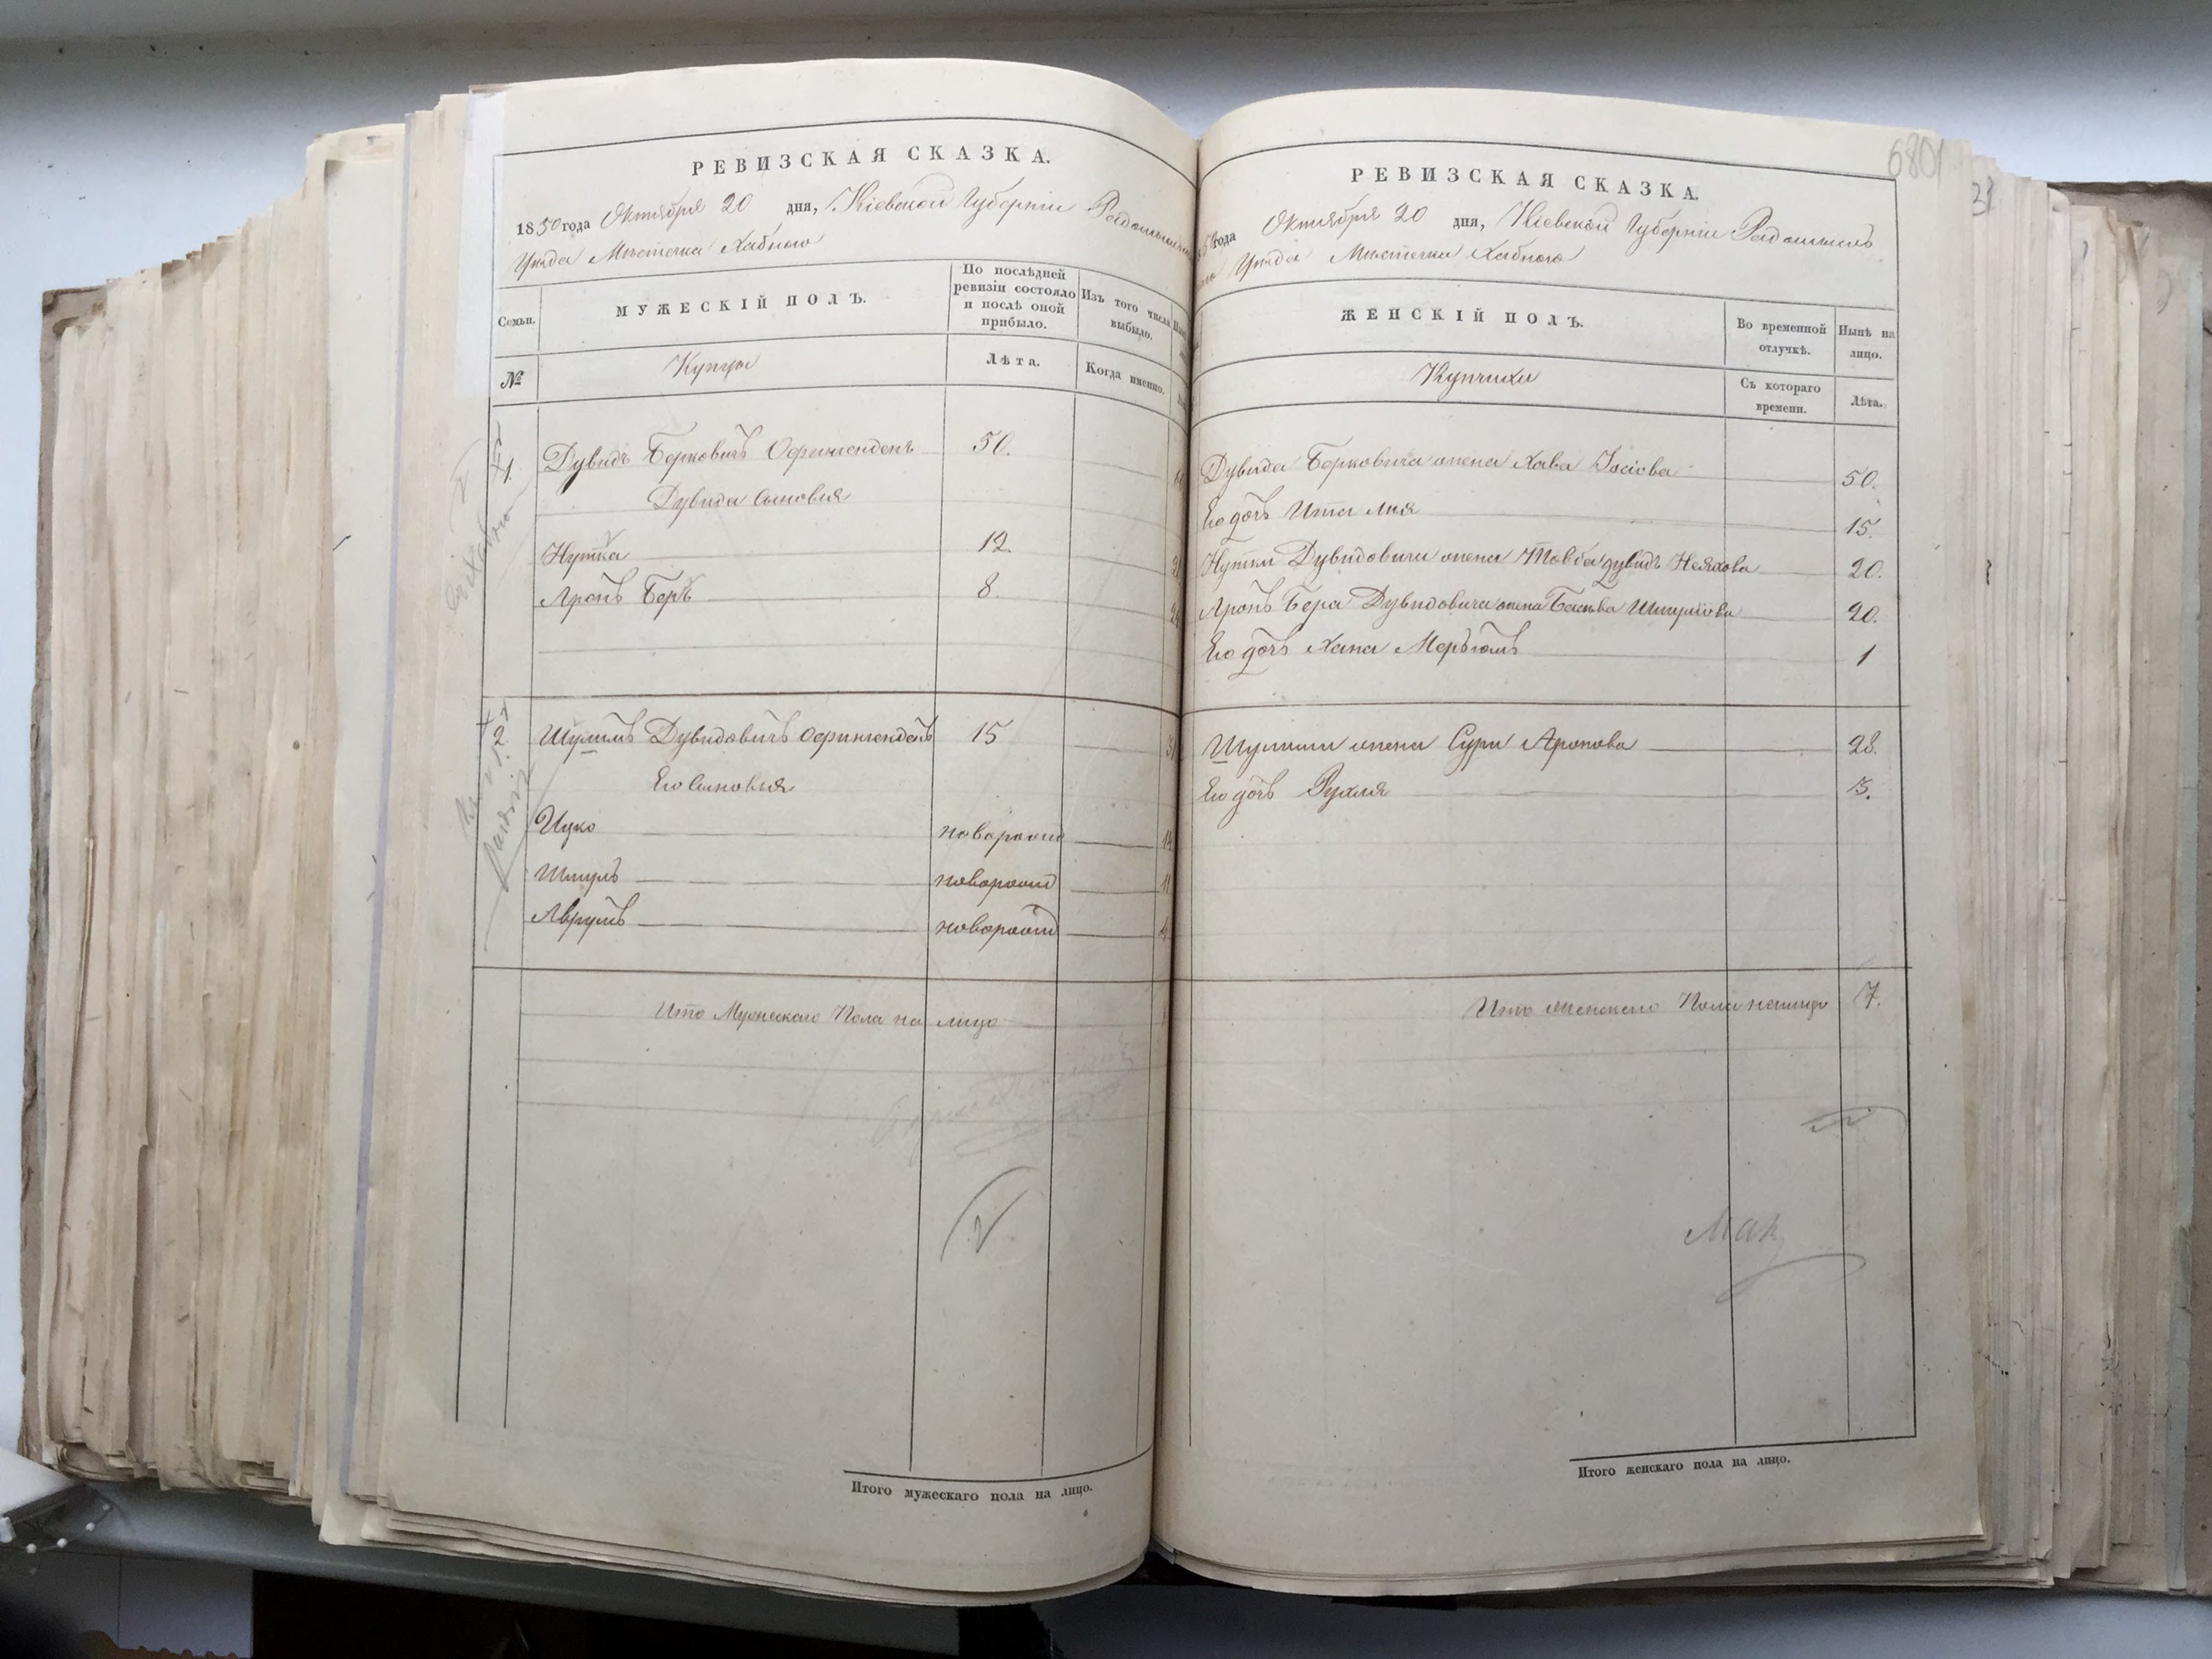 РЕВИЗСКАЯ СКАЗКА.
1850 года Октября 20 дня, Кіевской Губерніи Радомысль
Уѣзда Мѣстечка Хабного
Семьи.
МУЖЕСКІЙ ПОЛЪ.
По послѣдней ревизіи состояло и послѣ оной прибыло.
Изъ того числа выбыло.
№
Купцы
Лѣта.
Когда именно.
1. Дувидъ Берковичъ 50.
Дувида сыновья
Нутка 12.
Аронъ Беръ 8.
2. Шулимъ Дувидовичъ 15
Его сыновья
Ицко новорожд
Шмуль новорожд
Аврумъ новорожд
Итго Мужескаго Пола на лицо
Итого мужескаго пола на лицо.
6801
РЕВИЗСКАЯ СКАЗКА.
года Октября 20 дня, Кіевской Губерніи Радомысль
Уѣзда Мѣстечка Хабного
ЖЕНСКІЙ ПОЛЪ.
Во временной отлучкѣ.
Нынѣ на лицо.
Купчихи
Съ котораго времени.
Лѣта.
Дувида Берковича жена Хава Іосіова 50.
Его дочь Ита Лия 15.
Нутки Дувидовича жена Товба 20.
Аронъ Бера Дувидовича жена 20.
Его дочь Хана 1
Шулима жена Сура Аронова 28.
Его дочь Рухля 3.
Итго женскаго Пола налицо 7.
Итого женскаго пола на лицо.